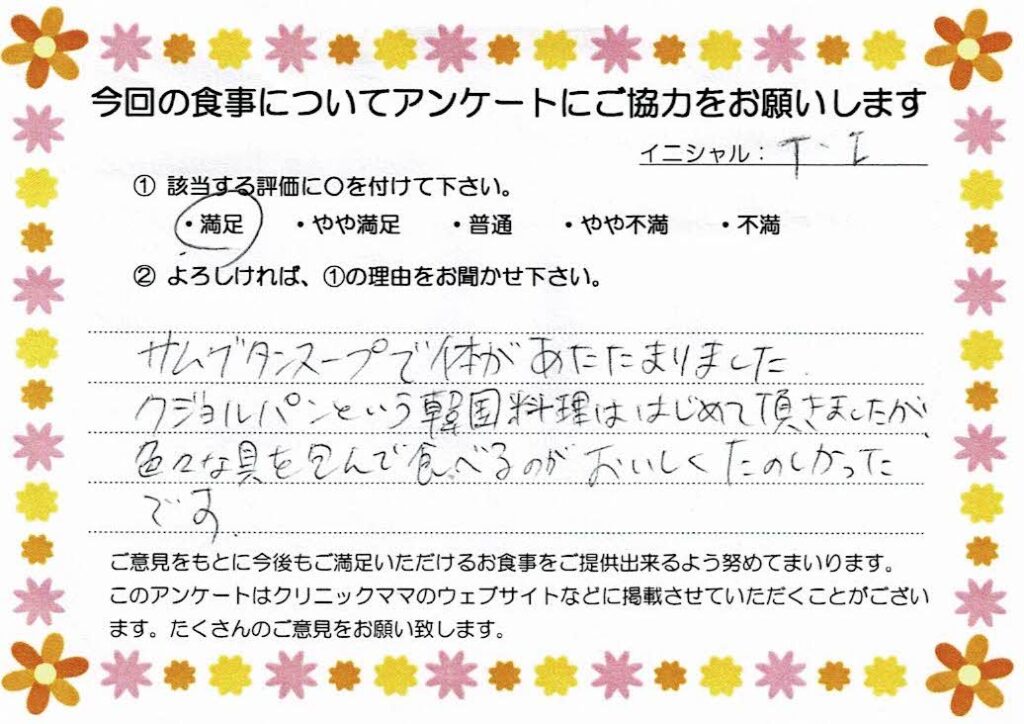 今回の食事についてアンケートにご協力をお願いします
イニシャル： T・I
① 該当する評価に〇を付けて下さい。
・満足 ・やや満足 ・普通 ・やや不満 ・不満
② よろしければ、①の理由をお聞かせ下さい。
サムゲタンスープで体があたたまりました.
クジョルパンという韓国料理ははじめて頂きましたが、
色々な具を包んで食べるのがおいしくたのしかった
です.
ご意見をもとに今後もご満足いただけるお食事をご提供出来るよう努めてまいります。
このアンケートはクリニックママのウェブサイトなどに掲載させていただくことがござい
ます。たくさんのご意見をお願い致します。